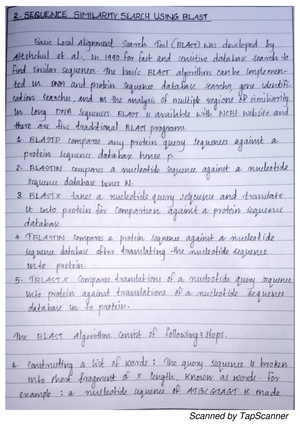 2. SEQUENCE SIMILARITY SEARCH USING BLAST
Basic Local Alignment Search Tool (BLAST) was developed by
Altschul et al. in 1990 for fast and sensitive database search to
find similar sequences. The basic BLAST algorithm can be implemen-
ted in DNA and protein sequence database searches, gene identifi-
cation searches, and in the analysis of multiple regions of similarity
in long DNA sequences. BLAST is available with NCBI website and
there are five traditional BLAST programs.
1. BLASTP compares any protein query sequences against a
protein sequence database hence p.
2. BLASTN compares a nucleotide sequence against a nucleotide
sequence database hence N.
3. BLASTX takes a nucleotide query sequence and translate
it into protein for comparison against a protein sequence
database
4. TBLASTN compares a protein sequence against a nucleotide
sequence database after translating the nucleotide sequence
into protein.
5. TBLASTX compares translations of a nucleotide query sequence
into protein against translations of a nucleotide sequence
database in to protein.
The BLAST Algorithm consist of following steps.
1. Constructing a list of words: The query sequence is broken
into short fragment of X length, known as words. For
example: a nucleotide sequence of is made
Scanned by TapScanner